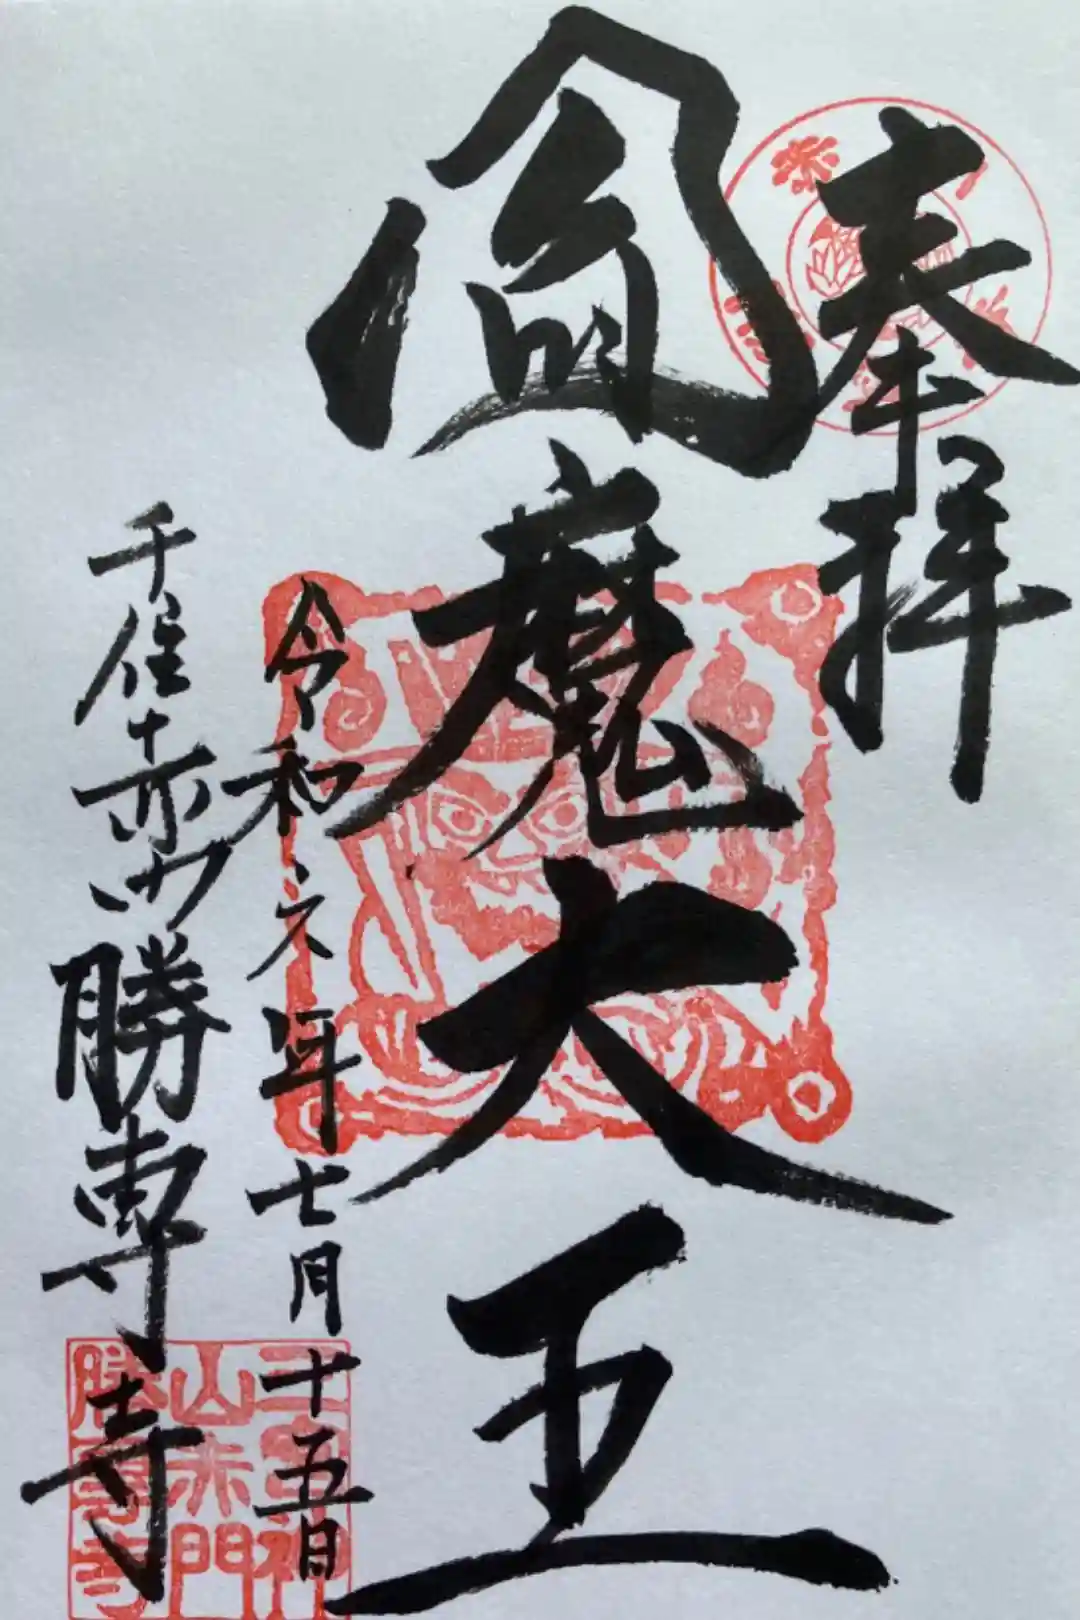 奉拝
閻魔大王
令和六年七月十五日
千住赤門勝専寺
三宮神
山赤門
勝専寺